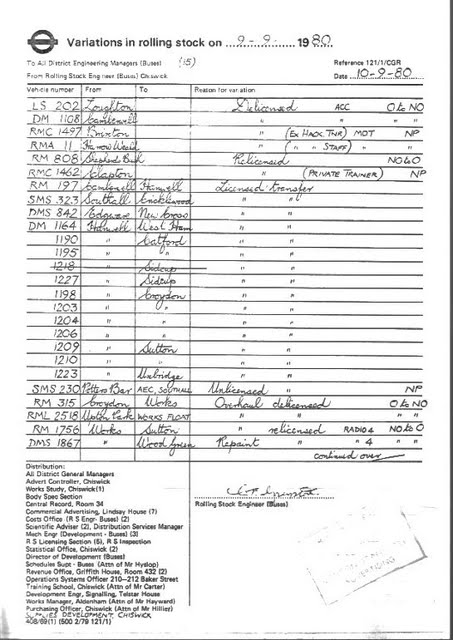 Variations in rolling stock on 9-9- 1980
To All District Engineering Managers (Buses) (15) Reference 121/1/CGR
From Rolling Stock Engineer (Buses) Chiswick Date 10-9-80
Vehicle number From To Reason for variation
LS 202 Loughton Delicensed ACC O to NO
DM 1108 Camberwell " " "
RMC 1497 Brixton " (Ex HACK TNR) MOT NP
RMA 11 Harrow Weald " ( " " STAFF) " "
RM 808 Shepherd Bush Relicensed NO to O
RMC 1462 Clapton " (PRIVATE TRAINER) NP
RM 197 Camberwell Hanwell Licensed transfer
SMS 323 Southall Cricklewood " "
DMS 842 Edgware New Cross " "
DM 1164 Hanwell West Ham " "
1190 " Catford " "
1195 " " " "
1218 " Sidcup " "
1227 " Sidcup " "
1198 " Croydon " "
1203 " " " "
1204 " " " "
1206 " " " "
1209 " Sutton " "
1210 " " " "
1223 " Uxbridge " "
SMS 230 Potters Bar AEC, SOUTHALL Unlicensed " NP
RM 309 Croydon Works Overhaul delicensed O to NO
RML 2518 Upton Park WORKS FLOAT " " " "
RM 1756 Works Sutton " relicensed RADIO 4 NO to O
DMS 1867 " Wood Green Repaint " 4 " "
continued over
Distribution:
All District General Managers
Advert Controller, Chiswick
Works Study, Chiswick(1)
Body Spec Section
Central Record, Room 34
Commercial Advertising, Lindsay House (7)
Costs Office (R S Engr- Buses) (2)
Scientific Adviser (2), Distribution Services Manager
Mech Engr (Development - Buses) (3)
R S Licensing Section (5), R S Inspection
Statistical Office, Chiswick (2)
Director of Development (Buses)
Schedules Supt - Buses (Attn of Mr Hyslop)
Revenue Office, Griffith House, Room 432 (2)
Operations Systems Officer 210–212 Baker Street
Training School, Chiswick (Attn of Mr Carter)
Development Engr, Signalling, Telstar House
Works Manager, Aldenham (Attn of Mr Hayward)
Purchasing Officer, Chiswick (Attn of Mr Hillier)
DEVELOPMENT, CHISWICK
408/69(1) (500 2/79 121/1)
Rolling Stock Engineer (Buses)